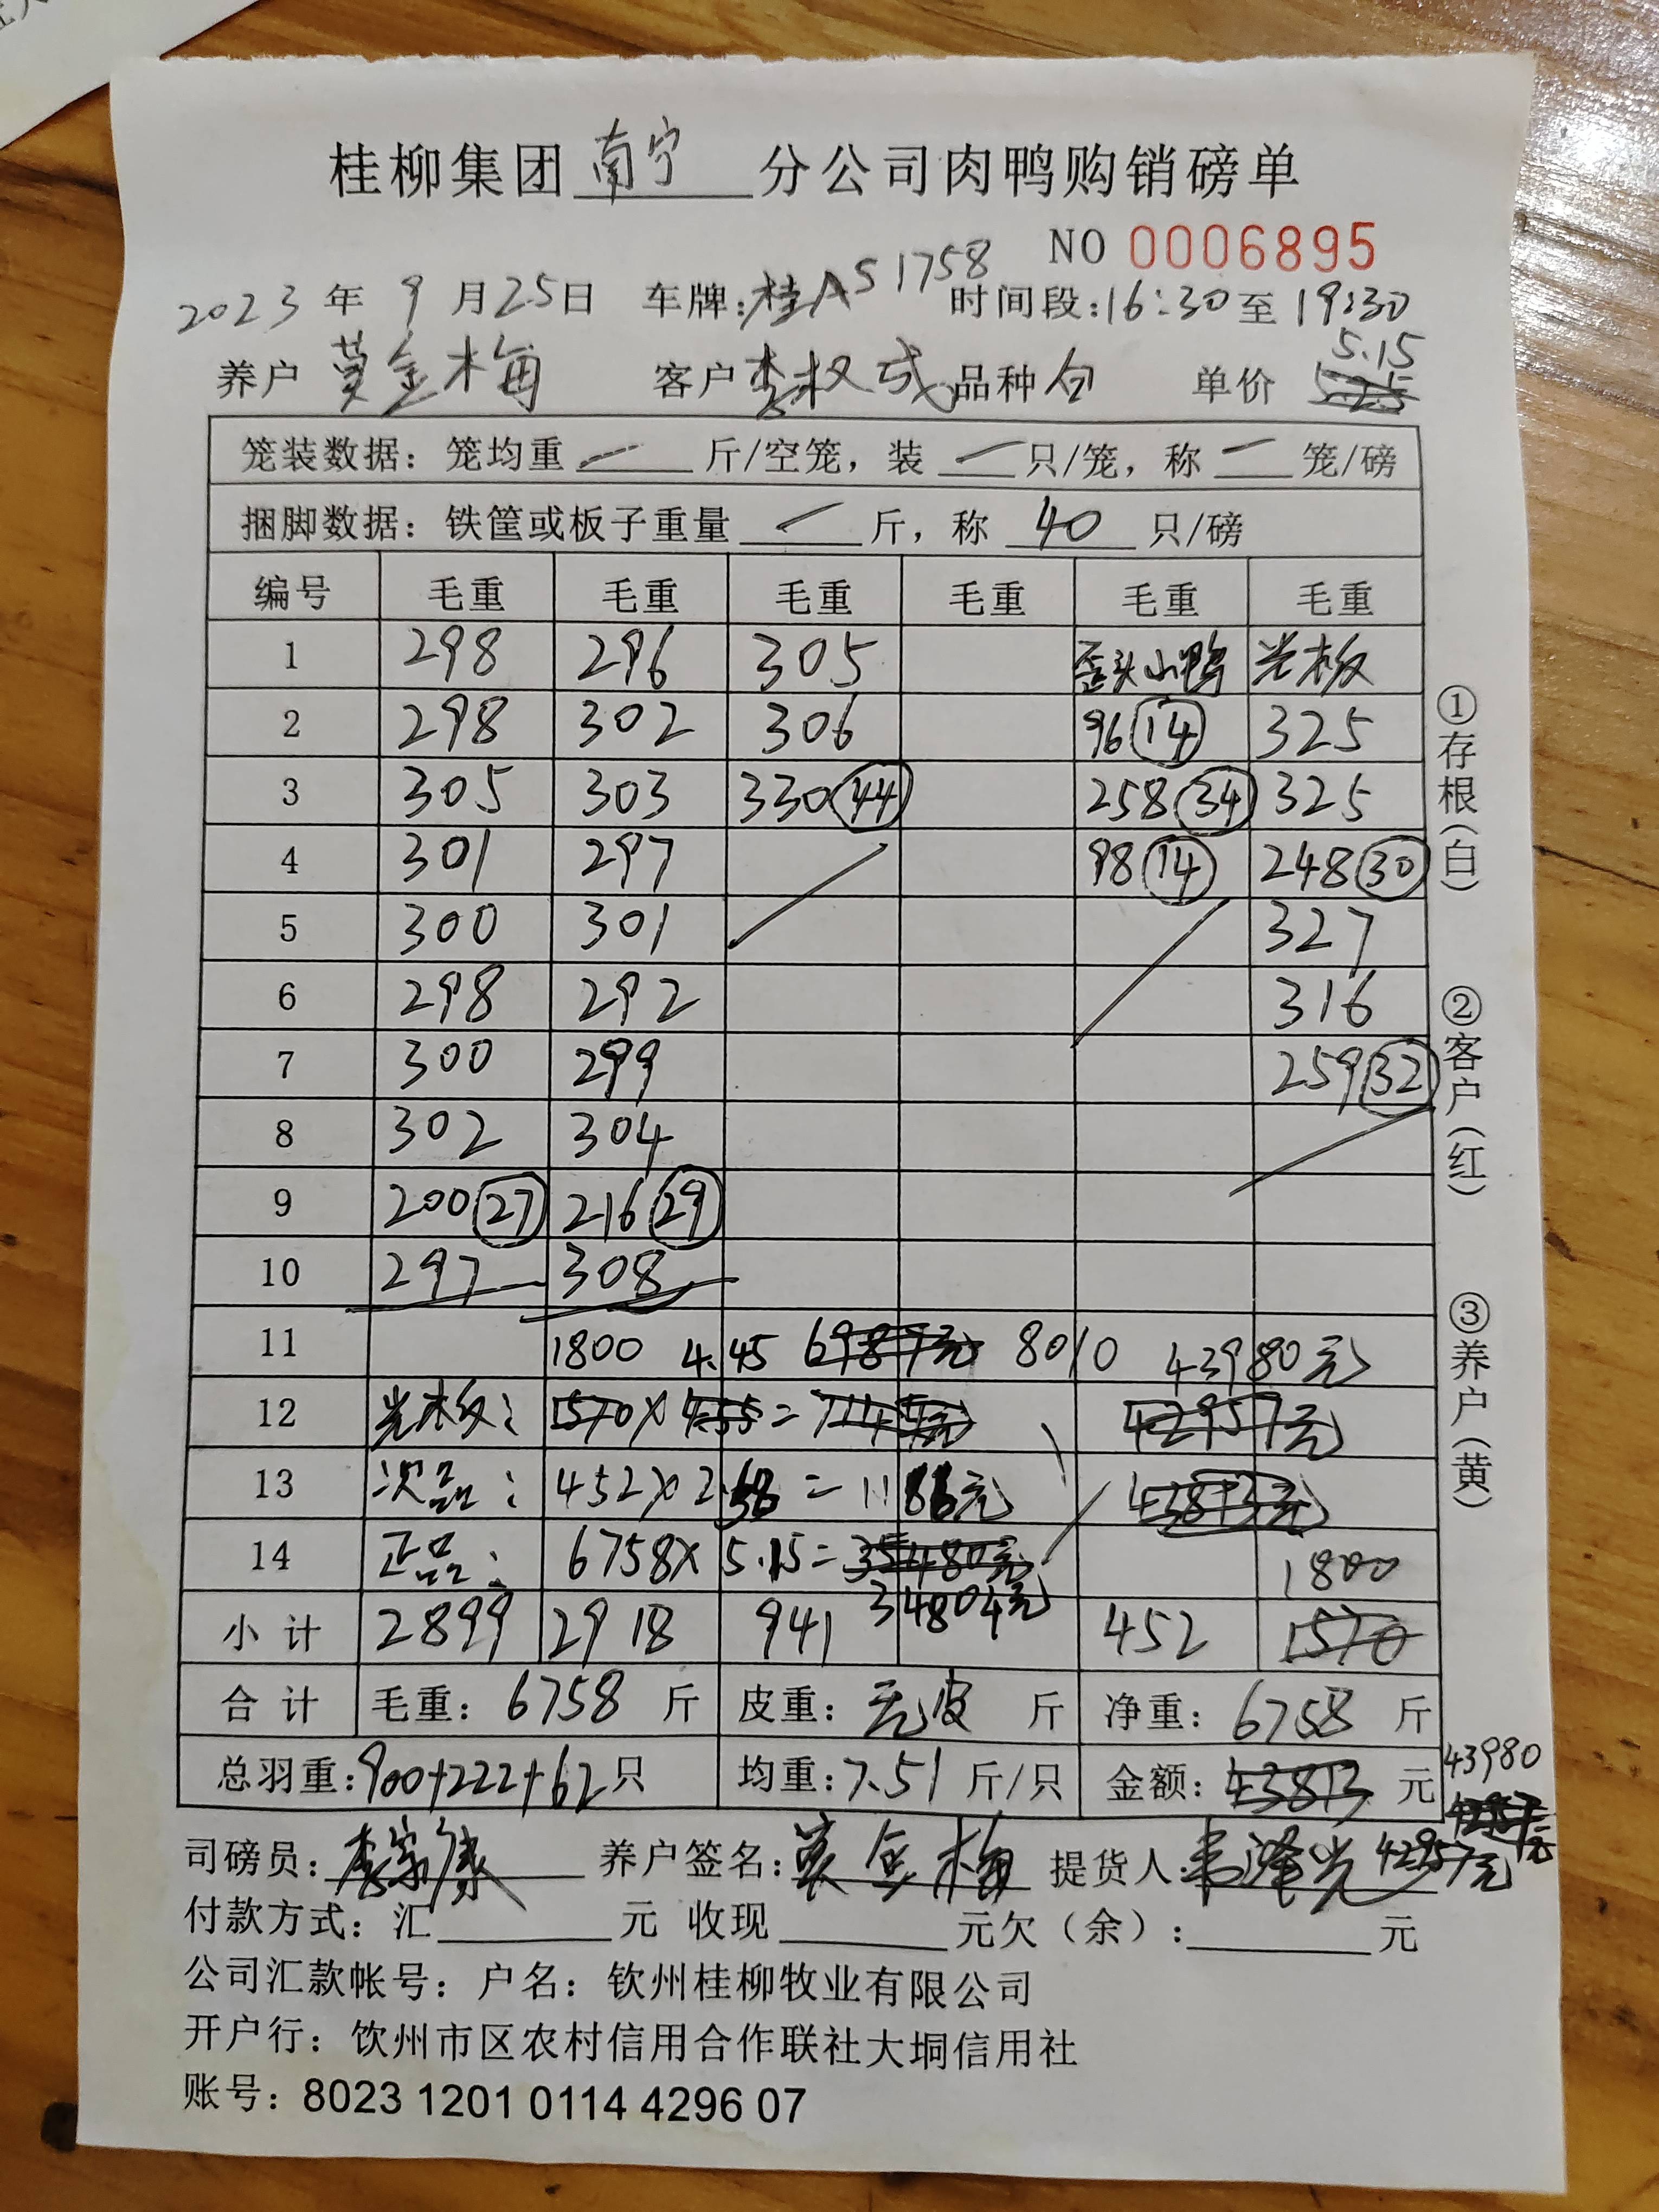 桂柳集团 南宁 分公司肉鸭购销磅单
NO 0006895
2023 年 9 月 25 日 车牌:桂AS1758 时间段:16:30 至 19:30
5.15
养户 黄金梅 客户 李权成 品种 白 单价 5.25
笼装数据:笼均重 — 斤/空笼,装 — 只/笼,称 — 笼/磅
捆脚数据:铁筐或板子重量 — 斤,称 40 只/磅
编号 毛重 毛重 毛重 毛重 毛重 毛重
1 298 296 305 歪头小鸭 光板
2 298 302 306 96 14 325
3 305 303 330 44 258 34 325
4 301 297 98 14 248 30
5 300 301 327
6 298 292 316
7 300 299 259 32
8 302 304
9 200 27 216 29
10 297 308
11 1800 4.45 6987元 8010 43980元
12 光板: 1570×4.55= 42957元
13 次品: 452×2. = 11 元 43813元
14 正品: 6758×5.15=35480元 1800
34804元
小计 2899 2918 941 452 1570
合计 毛重:6758 斤 皮重:无皮 斤 净重:6758 斤
总羽重:900+222+62只 均重:7.51 斤/只 金额:43813 元 43980
42957元
司磅员: 养户签名:黄金梅 提货人:
付款方式:汇 元 收现 元欠(余): 元
公司汇款帐号:户名:钦州桂柳牧业有限公司
开户行:饮州市区农村信用合作联社大垌信用社
账号:8023 1201 0114 4296 07
①存根(白)
②客户(红)
③养户(黄)